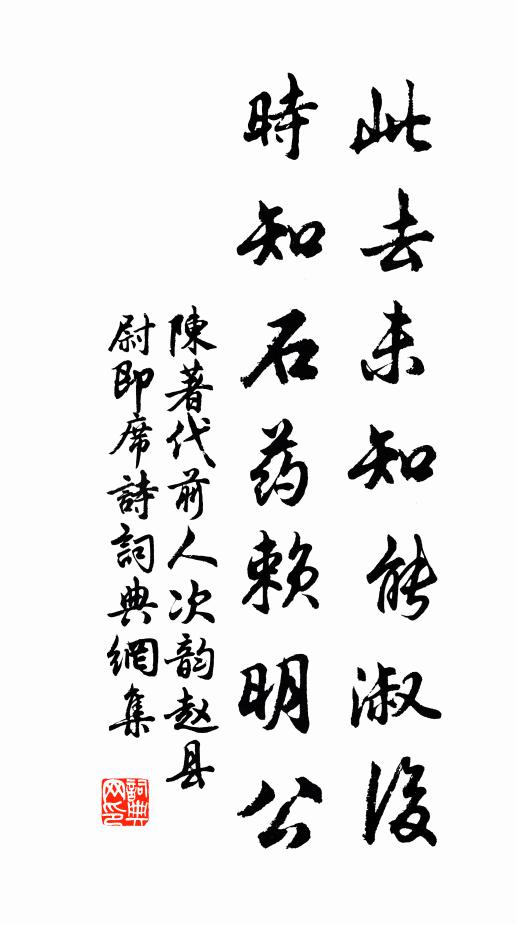 此去未知能淑後
時知石药赖明公
陳著代前人次韵赵县
尉即席詩詞典網集
詞典
网印